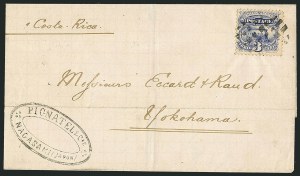 "Costa-Rica"
POSTAGE
3
Messieurs Eccard & Raud.
Yokohama.
PIGNATEL & Co
NAGASAKI (JAPAN)